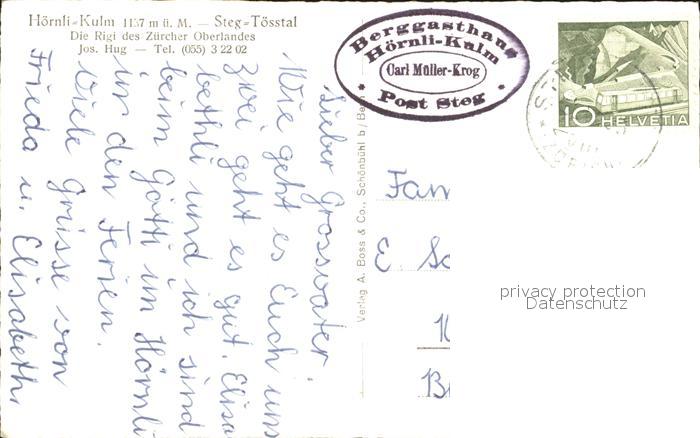 Hörnli-Kulm 1137 m ü. M. — Steg-Tösstal
Die Rigi des Zürcher Oberlandes
Jos. Hug — Tel. (055) 3 22 02
Berggasthaus
Hörnli-Kulm
Carl Müller-Krog
* Post Steg *
10 HELVETIA
Lieber Grossvater.
Wie geht es Euch uns
zwei geht es gut. Elisa
bethli und ich sind
beim Götti im Hörnli
in den Ferien.
Viele Grüsse von
Frieda u. Elisabethl
Verlag A. Boss & Co., Schönbühl b/Be
Fam
E
privacy protection
Datenschutz